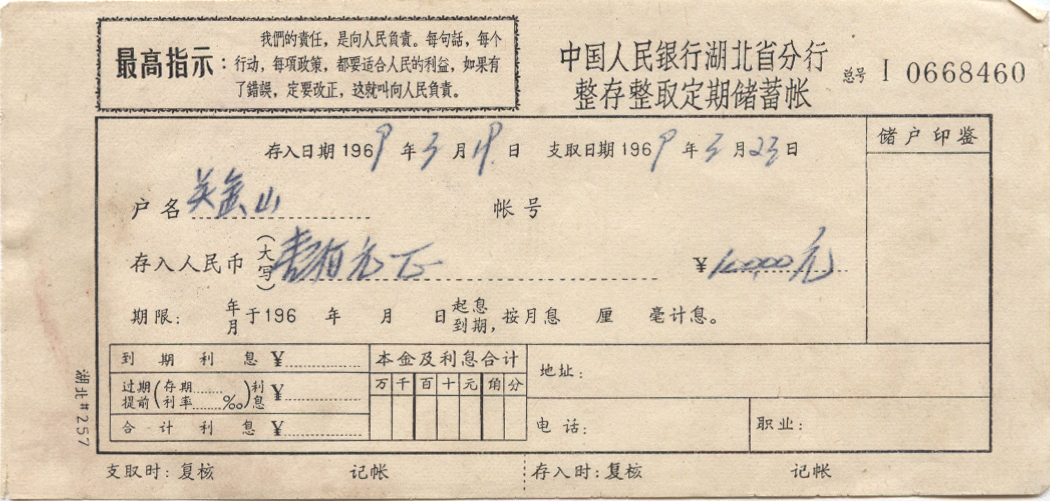 最高指示:
我們的責任,是向人民負責。每句話,每个
行动,每項政策,都要适合人民的利益,如果有
了錯誤,定要改正,这就叫向人民負責。
中国人民银行湖北省分行
整存整取定期储蓄帐
总号 I 0668460
存入日期 1969 年 3 月 19 日 支取日期 1969 年 3 月 23 日
储户印鉴
户名 关金山 帐号
存入人民币(大写) 壹佰元正 ¥100.00元
期限: 年月 于196 年 月 日 起息到期, 按月息 厘 毫计息。
到期利息 ¥
过期提前(存期 利率 ‰)利息 ¥
合计利息 ¥
本金及利息合计
万 千 百 十 元 角 分
地址:
电话:
职业:
湖北#257
支取时:复核 记帐 存入时:复核 记帐